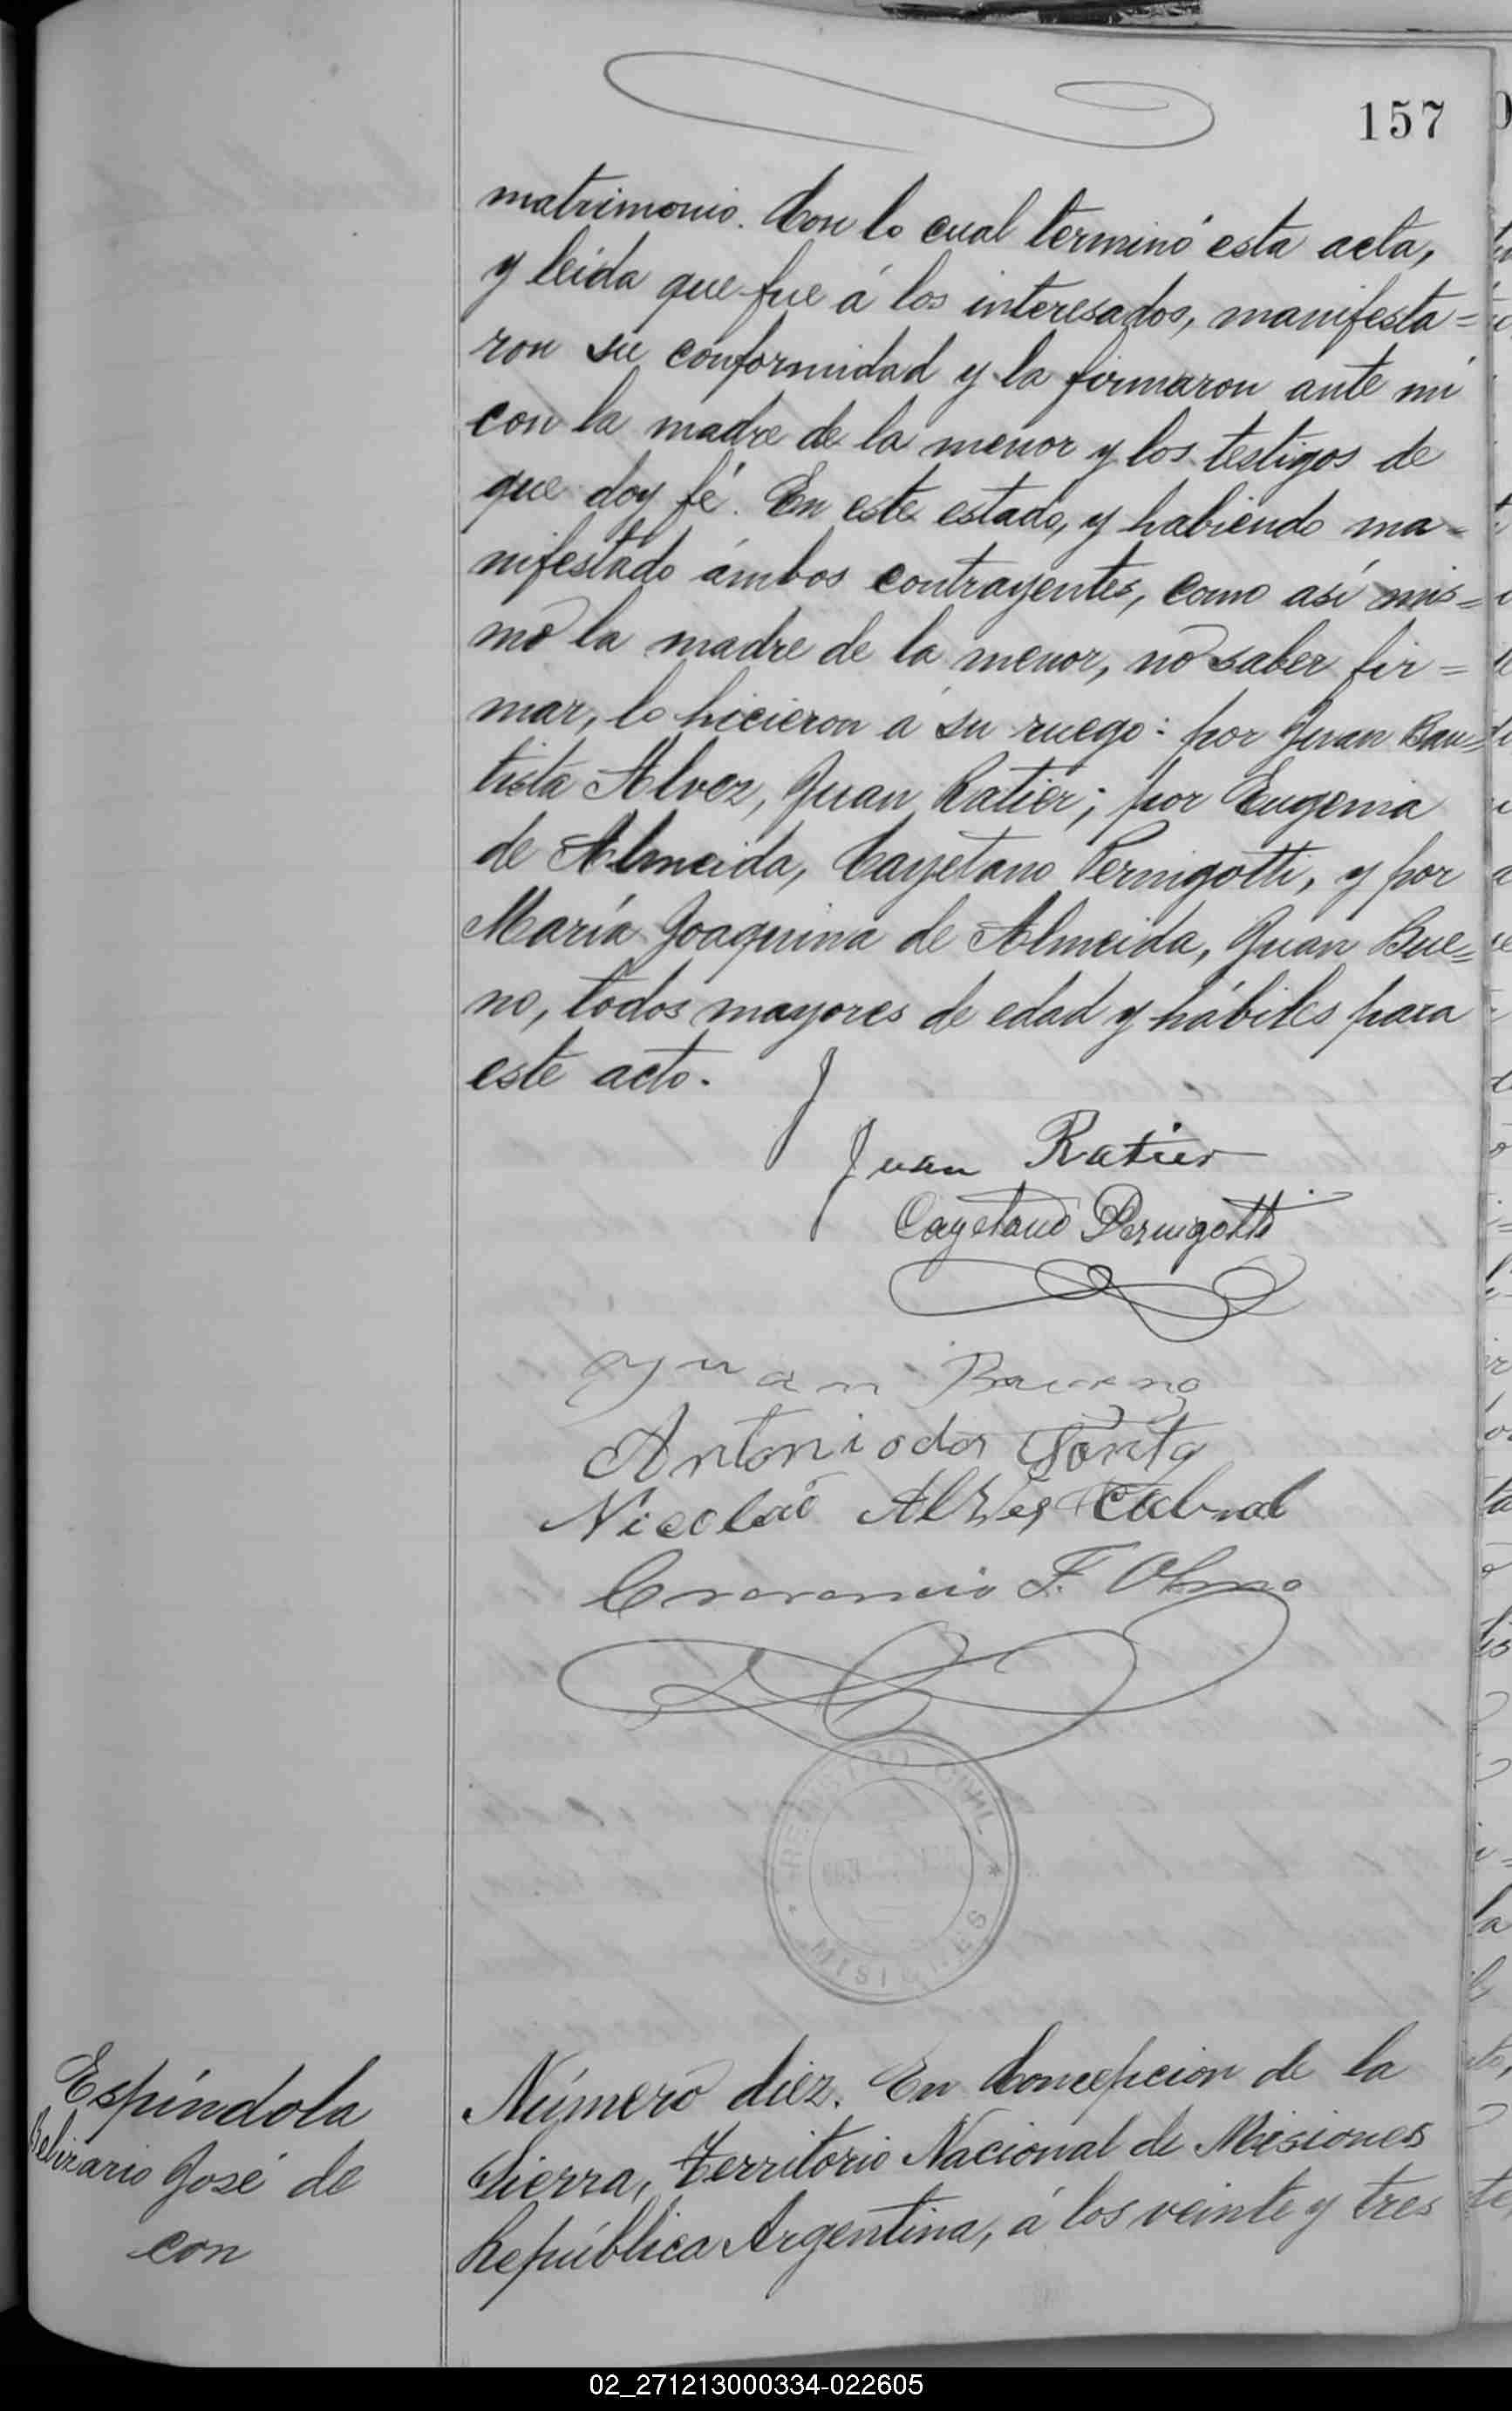 157
matrimonio. Con lo cual terminó esta acta,
y leida que fue á los interesados, manifesta=
ron su conformidad y la firmaron ante mi
con la madre de la menor y los testigos de
que doy fé. En este estado, y habiendo ma=
nifestado ámbos contrayentes, como así mis=
mo la madre de la menor, no saber fir=
mar, lo hicieron á su ruego: por Juan Bau=
tista Alvez, Juan Ratier; por Eugenia
de Almeida, Cayetano Pernigotti, y por
María Joaquina de Almeida, Juan Bue=
no, todos mayores de edad y hábiles para
este acto.
Juan Ratier
Cayetano Pernigotti
Juan
Antonio dos
Nicolao Alves Cabral
F. Olmo
REGISTRO CIVIL
MISIONES
Espíndola
Belizario José de
con
Número diez. En Concepcion de la
Sierra, Territorio Nacional de Misiones
República Argentina, á los veinte y tres
02_271213000334-022605